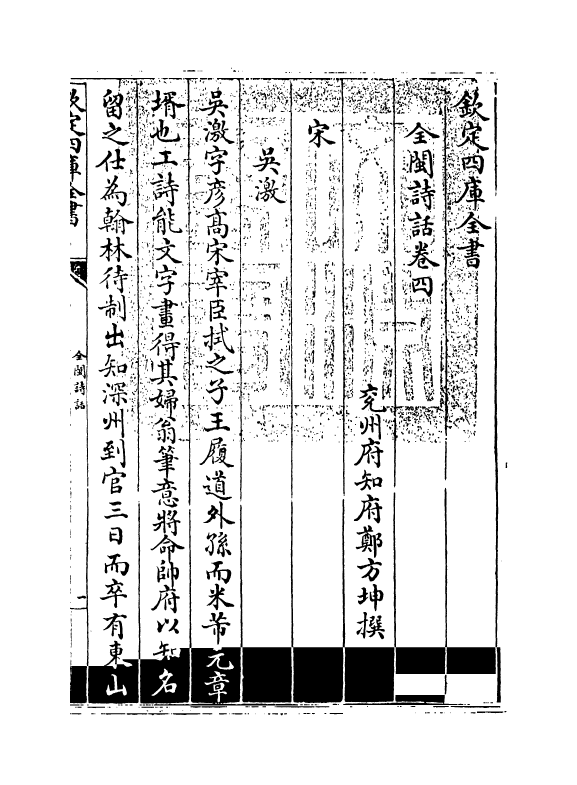 欽定四庫全書
全閩詩話卷四
兖州府知府鄭方坤撰
宋
吳激
吳激字彦髙宋宰臣拭之子王履道外孫而米芾元章
壻也工詩能文字畫得其婦翁筆意將命帥府以知名
留之仕為翰林待制出知深州到官三日而卒有東山
欽定四庫全書
全閩詩話
一